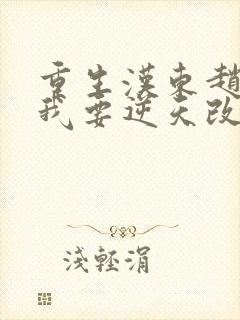 重生漢東趙
我要逆天改
淺輕涓